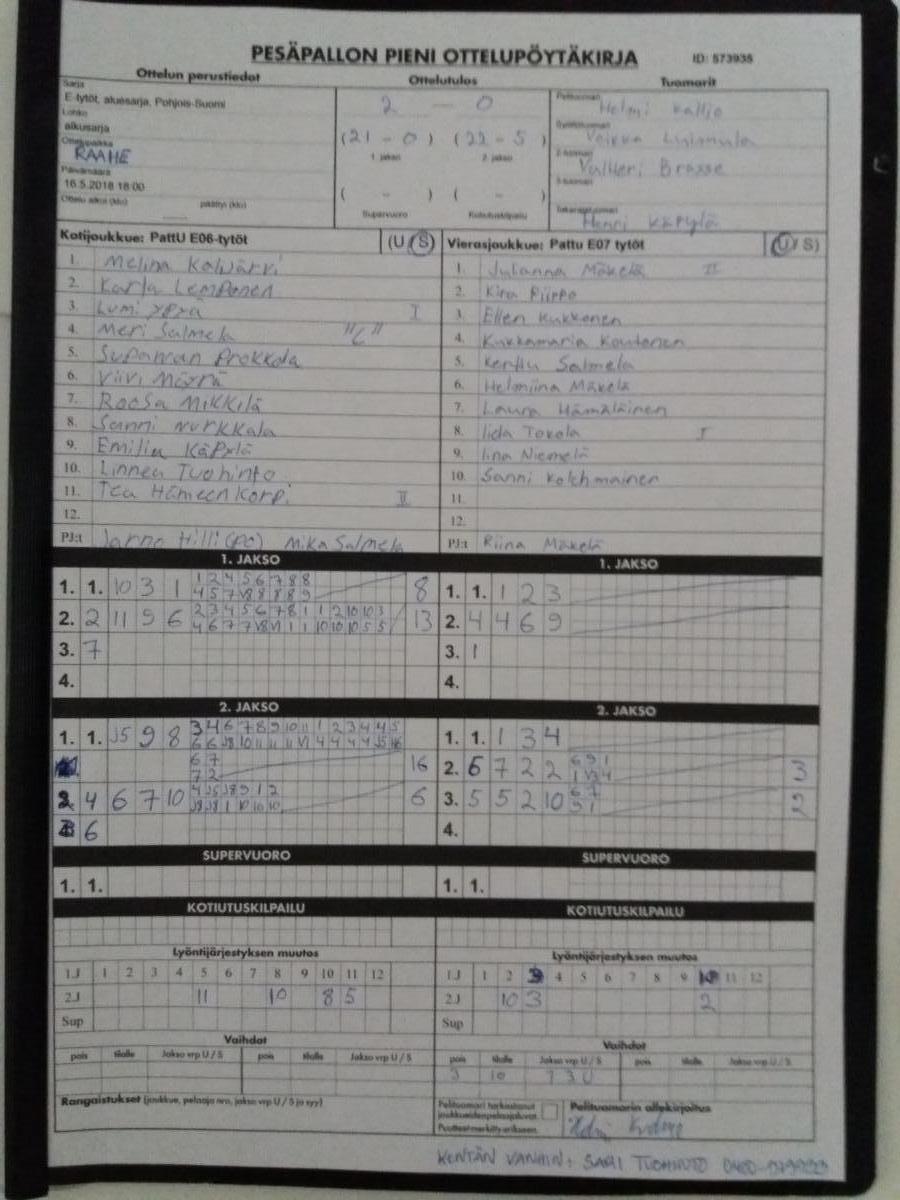 PESÄPALLON PIENI OTTELUPÖYTÄKIRJA ID: 573935
Ottelun perustiedot Ottelutulos Tuomarit
Sarja
E-tytöt, aluesarja, Pohjois-Suomi
Lohko
alkusarja
Ottelupaikka
RAAHE
Päivämäärä
16.5.2018 18:00
Ottelu alkoi (klo) päättyi (klo)
2 - 0
(21 - 0) (22 - 5)
1. jakso 2. jakso
( - ) ( - )
Supervuoro Kotiutuskilpailu
Pelituomari Helmi Kallio
Syöttötuomari Veikka
2-tuomari Valtteri Brasse
3-tuomari
Takarajatuomari Henni Käpylä
Kotijoukkue: PattU E06-tytöt (U / S)
1. Melina Kolujärvi
2. Karla Lemponen
3. Lumi Yprä I
4. Meri Salmela "C"
5. Supawan Prokkola
6. Viivi Mörä
7. Roosa Mikkilä
8. Sanni Nurkkala
9. Emilia Käpylä
10. Linnea Tuohinto
11. Tea Hämeenkorpi II
12.
PJ:t Jarno Hilli (PC) Mika Salmela
Vierasjoukkue: Pattu E07 tytöt (U / S)
1. Julianna Mäkelä II
2. Kira Piippo
3. Ellen Kukkonen
4. Kukkamaria Koutonen
5. Kerttu Salmela
6. Helmiina Mäkelä
7. Laura Hämäläinen
8. Iida Tokola I
9. Iina Niemelä
10. Sanni Kolehmainen
11.
12.
PJ:t Riina Mäkelä
1. JAKSO
1. 1. 10 3 1 1 2 4 5 6 7 8 8 8
4 5 7 8 8 8 8 9
2. 2 11 9 6 2 3 4 5 6 7 8 1 1 2 10 10 3 13
3. 7
4.
2. JAKSO
1. 1. 9 8 3 4 6 7 8 9 10 11 1 2 3 4 4 5
6 7 16
7 2
2 4 6 7 10 6
3 6
SUPERVUORO
1. 1.
KOTIUTUSKILPAILU
Lyöntijärjestyksen muutos
1J 1 2 3 4 5 6 7 8 9 10 11 12
2J 11 10 8 5
Sup
Vaihdot
pois tilalle Jakso vrp U / S pois tilalle Jakso vrp U / S
Rangaistukset (joukkue, pelaaja nro, jakso vrp U / S ja syy)
1. JAKSO
1. 1. 1 2 3
2. 4 4 6 9
3. 1
4.
2. JAKSO
1. 1. 1 3 4
2. 6 7 2 2 6 9 1 3
3. 5 5 2 10 6 7 2
9 1
4.
SUPERVUORO
1. 1.
KOTIUTUSKILPAILU
Lyöntijärjestyksen muutos
1J 1 2 3 4 5 6 7 8 9 10 11 12
2J 10 3 2
Sup
Vaihdot
pois tilalle Jakso vrp U / S pois tilalle Jakso vrp U / S
3 10 3 U
Pelituomari tarkastanut
joukkueiden pelaajaluvat.
Puutteet merkitty erikseen.
Pelituomarin allekirjoitus
KENTÄN VANHIN: SARI TUOHINTO